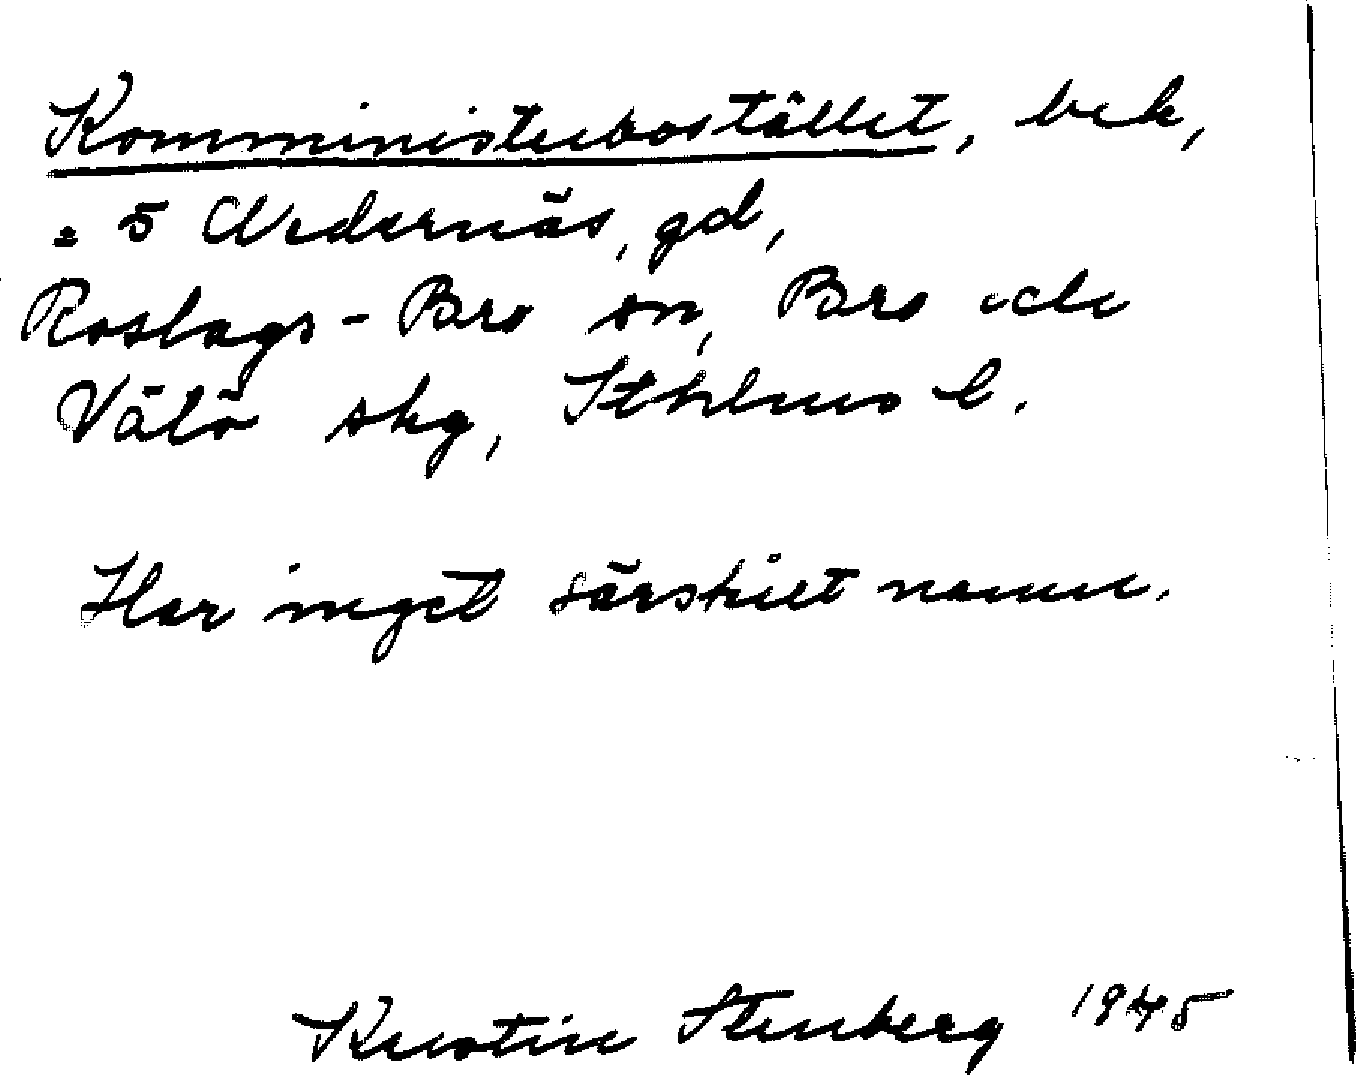 Komministerbostället, bek,
= 5 Nedernäs, gd,
Roslags-Bro sn, Bro och
Vätö skg, Sthlms l.
Har inget särskilt namn.
Kerstin Stenberg 1945